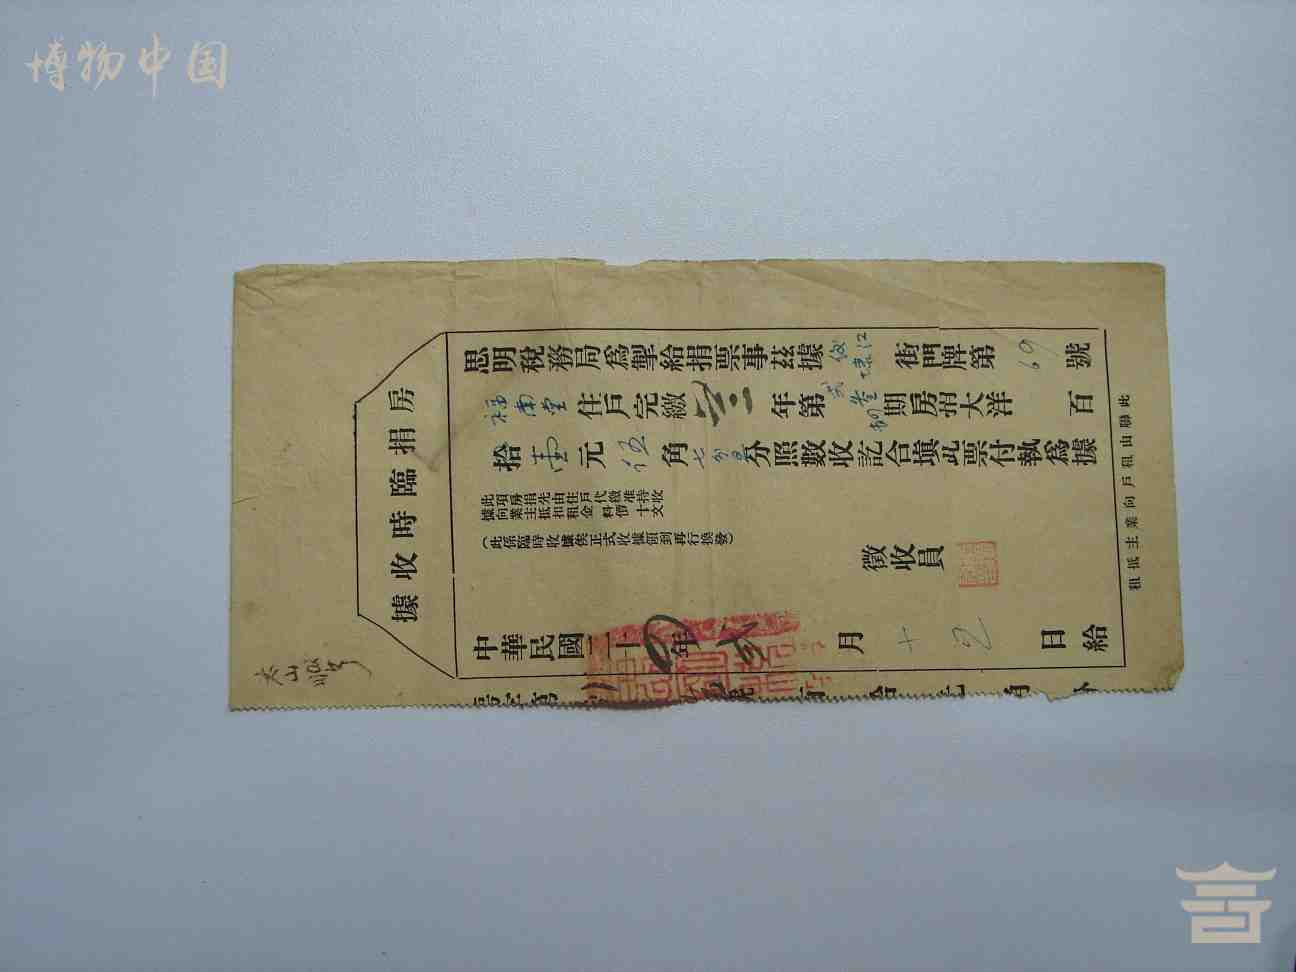 博物中国
房捐臨時收據
思明稅務局爲掣給捐票事茲據
街門牌第69號
福南堂住戶完繳
年第
期房捐大洋
百
拾
元伍角七分
照數收訖合填此票付執爲據
此項房捐先由住戶代繳准持收
據向業主抵扣租金料價十文
(此係臨時收據俟正式收據領到再行換發)
徵收員
中華民國二十四年
月十
日給
此聯由租戶向業主抵租